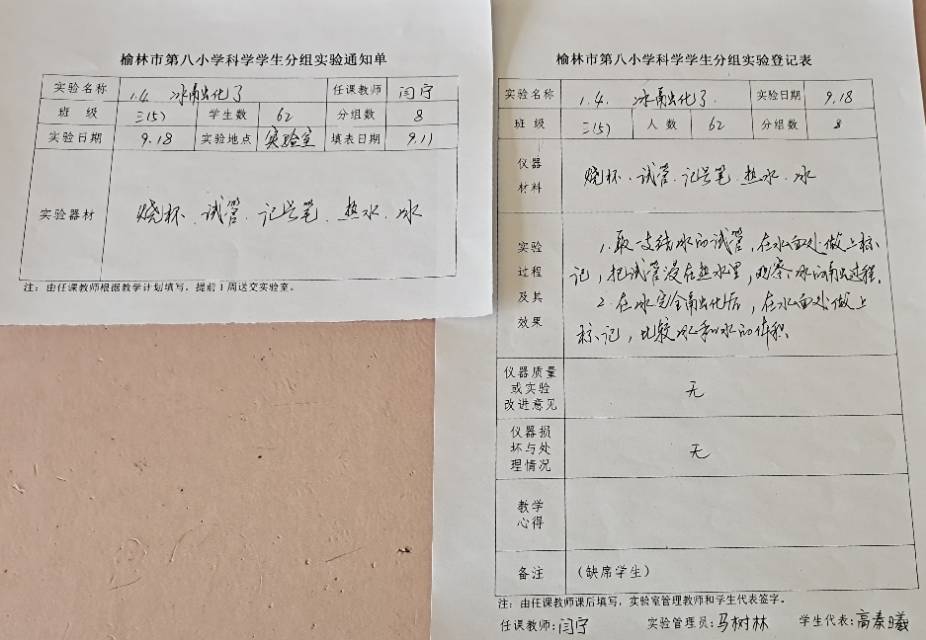 榆林市第八小学科学学生分组实验通知单
实验名称 1.4. 冰融化了 任课教师 闫宁
班 级 三(5) 学生数 62 分组数 8
实验日期 9.18 实验地点 实验室 填表日期 9.11
实验器材 烧杯、试管、记号笔、热水、冰
注：由任课教师根据教学计划填写，提前1周送交实验室。
榆林市第八小学科学学生分组实验登记表
实验名称 1.4. 冰融化了. 实验日期 9.18
班 级 三(5) 人 数 62 分组数 8
仪器
材料
烧杯、试管、记号笔、热水、冰
实验
过程
及其
效果
1.取一支结冰的试管,在冰面处做上标
记,把试管浸在热水里,观察冰的融化过程.
2.在冰完全融化后,在水面处做上
标记,比较冰和水的体积.
仪器质量
或实验
改进意见
无
仪器损
坏与处
理情况
无
教学
心得
备注 (缺席学生)
注：由任课教师课后填写，实验室管理教师和学生代表签字。
任课教师:闫宁 实验管理员:马树林 学生代表:高秦曦